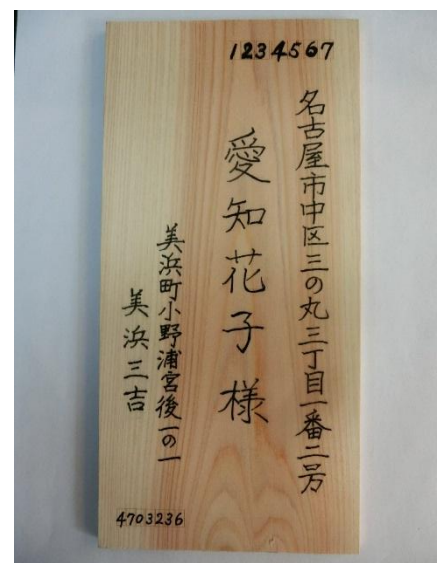 1234567
名古屋市中区三の丸三丁目一番二号
愛知花子様
美浜町小野浦宮後一の一
美浜三吉
4703236